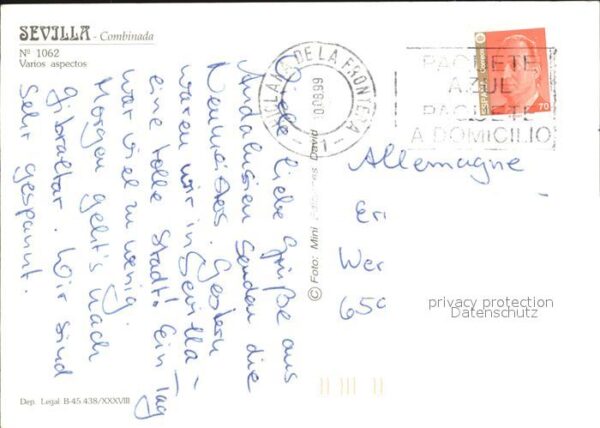 SEVILLA - Combinada
Nº 1062
Varios aspectos
Viele liebe Grüße aus
Andalusien senden die
Neumeisters. Gestern
waren wir in Sevilla –
eine tolle Stadt! Ein Tag
war viel zu wenig.
Morgen geht's nach
Gibraltar. Wir sind
sehr gespannt.
CHICLANA DE LA FRONTERA
- 1 -
PAQUETE
AZUL
PAQUETE
A DOMICILIO
ESPAÑA Correos
70
© Foto: Mini Ediciones David
Allemagne
Er
Wer
650
privacy protection
Datenschutz
Dep. Legal B-45.438/XXXVIII